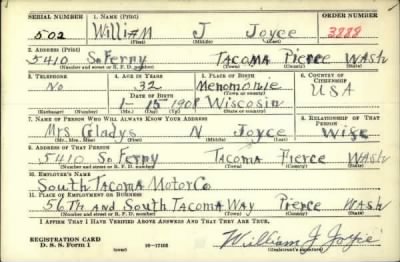 SERIAL NUMBER 1. NAME (Print) ORDER NUMBER
502 William J Joyce 3228
(First) (Middle) (Last)
2. ADDRESS (Print)
5410 So Ferry Tacoma Pierce Wash
(Number and street or R. F. D. number) (Town) (County) (State)
3. TELEPHONE 4. AGE IN YEARS 5. PLACE OF BIRTH 6. COUNTRY OF CITIZENSHIP
No 32 Menomonie USA
DATE OF BIRTH (Town or county)
1-15-1908 Wiscosin
(Exchange) (Number) (Mo.) (Day) (Yr.) (State or country)
7. NAME OF PERSON WHO WILL ALWAYS KNOW YOUR ADDRESS 8. RELATIONSHIP OF THAT PERSON
Mrs Gladys N Joyce Wife
(Mr., Mrs., Miss) (First) (Middle) (Last)
9. ADDRESS OF THAT PERSON
5410 So Ferry Tacoma Pierce Wash
(Number and street or R. F. D. number) (Town) (County) (State)
10. EMPLOYER'S NAME
South Tacoma Motor Co
11. PLACE OF EMPLOYMENT OR BUSINESS
56th and South Tacoma Way Pierce Wash
(Number and street or R. F. D. number) (Town) (County) (State)
I AFFIRM THAT I HAVE VERIFIED ABOVE ANSWERS AND THAT THEY ARE TRUE.
REGISTRATION CARD
D. S. S. Form 1 (over) 16-17105 William J Joyce
(Registrant's signature)